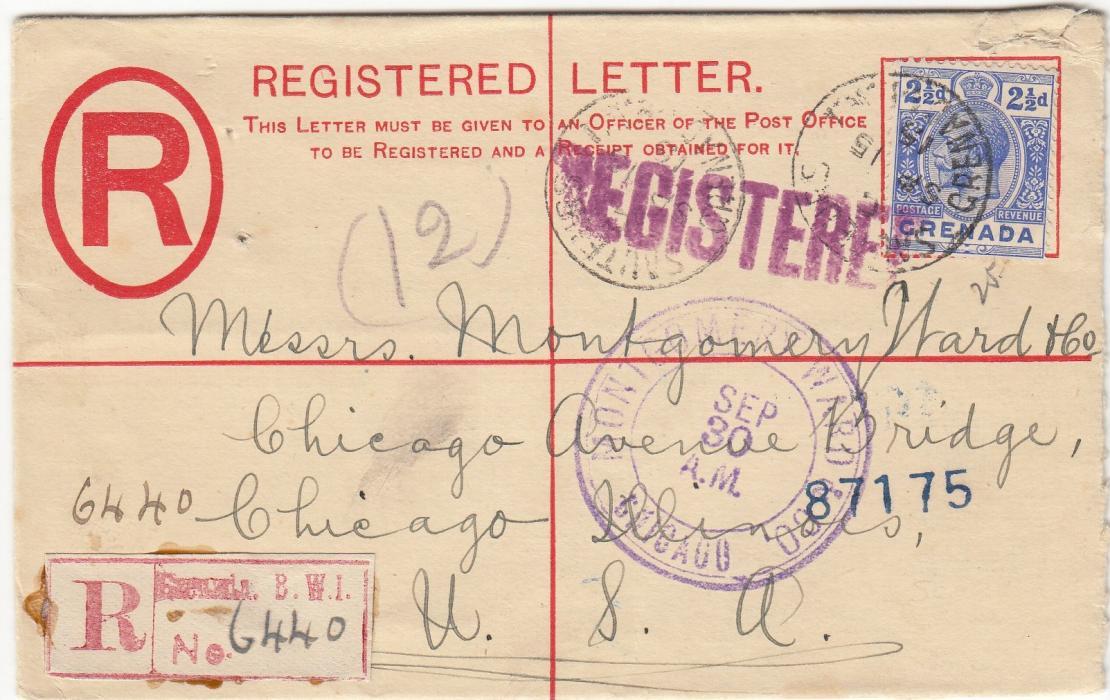 R
REGISTERED LETTER.
THIS LETTER MUST BE GIVEN TO AN OFFICER OF THE POST OFFICE
TO BE REGISTERED AND A RECEIPT OBTAINED FOR IT.
2½d 2½d
POSTAGE REVENUE
GRENADA
GRENADA
REGISTERED
(12)
Messrs. Montgomery Ward & Co
Chicago Avenue Bridge,
Chicago Illinois,
U. S. A.
MONTGOMERY WARD
SEP
30
A.M.
CHICAGO
87175
6440
R
B.W.I.
No. 6440